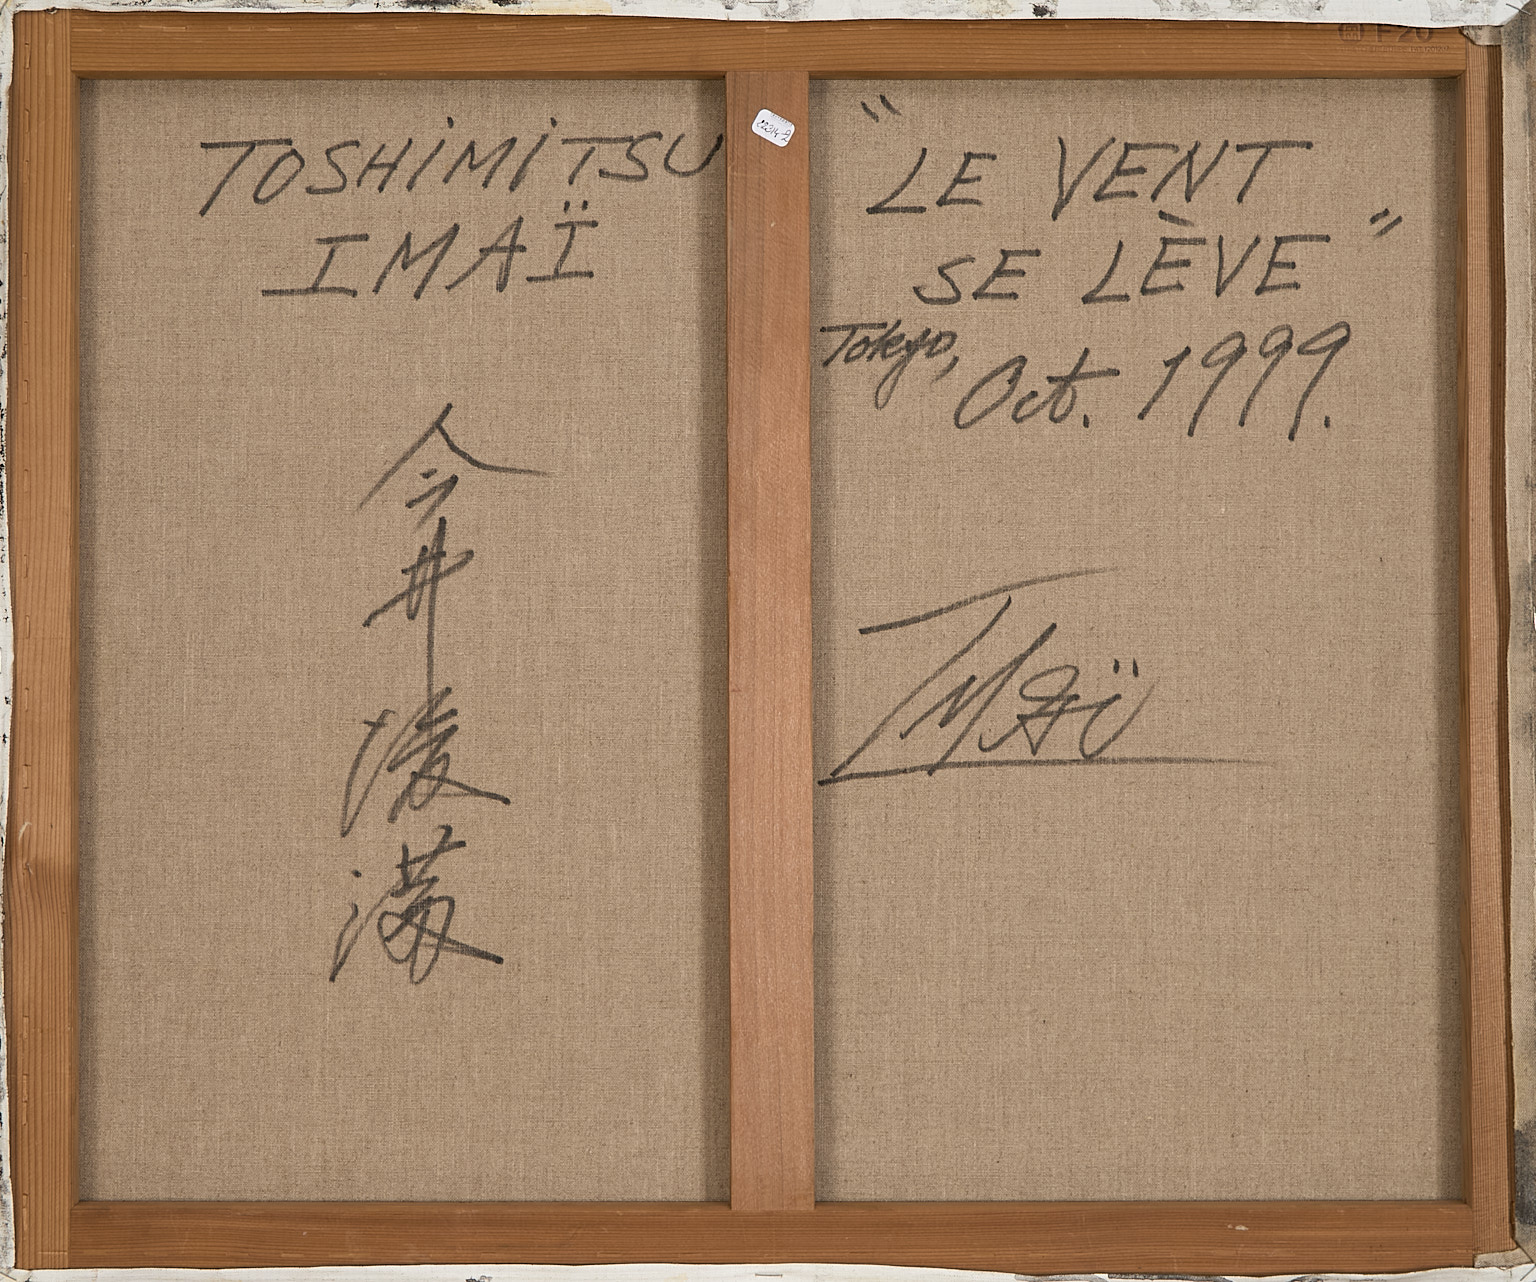 TOSHiMiTSU
IMAÏ
今井俊満
"LE VENT
SE LÈVE"
Tokyo, Oct. 1999.
IMaï
F20